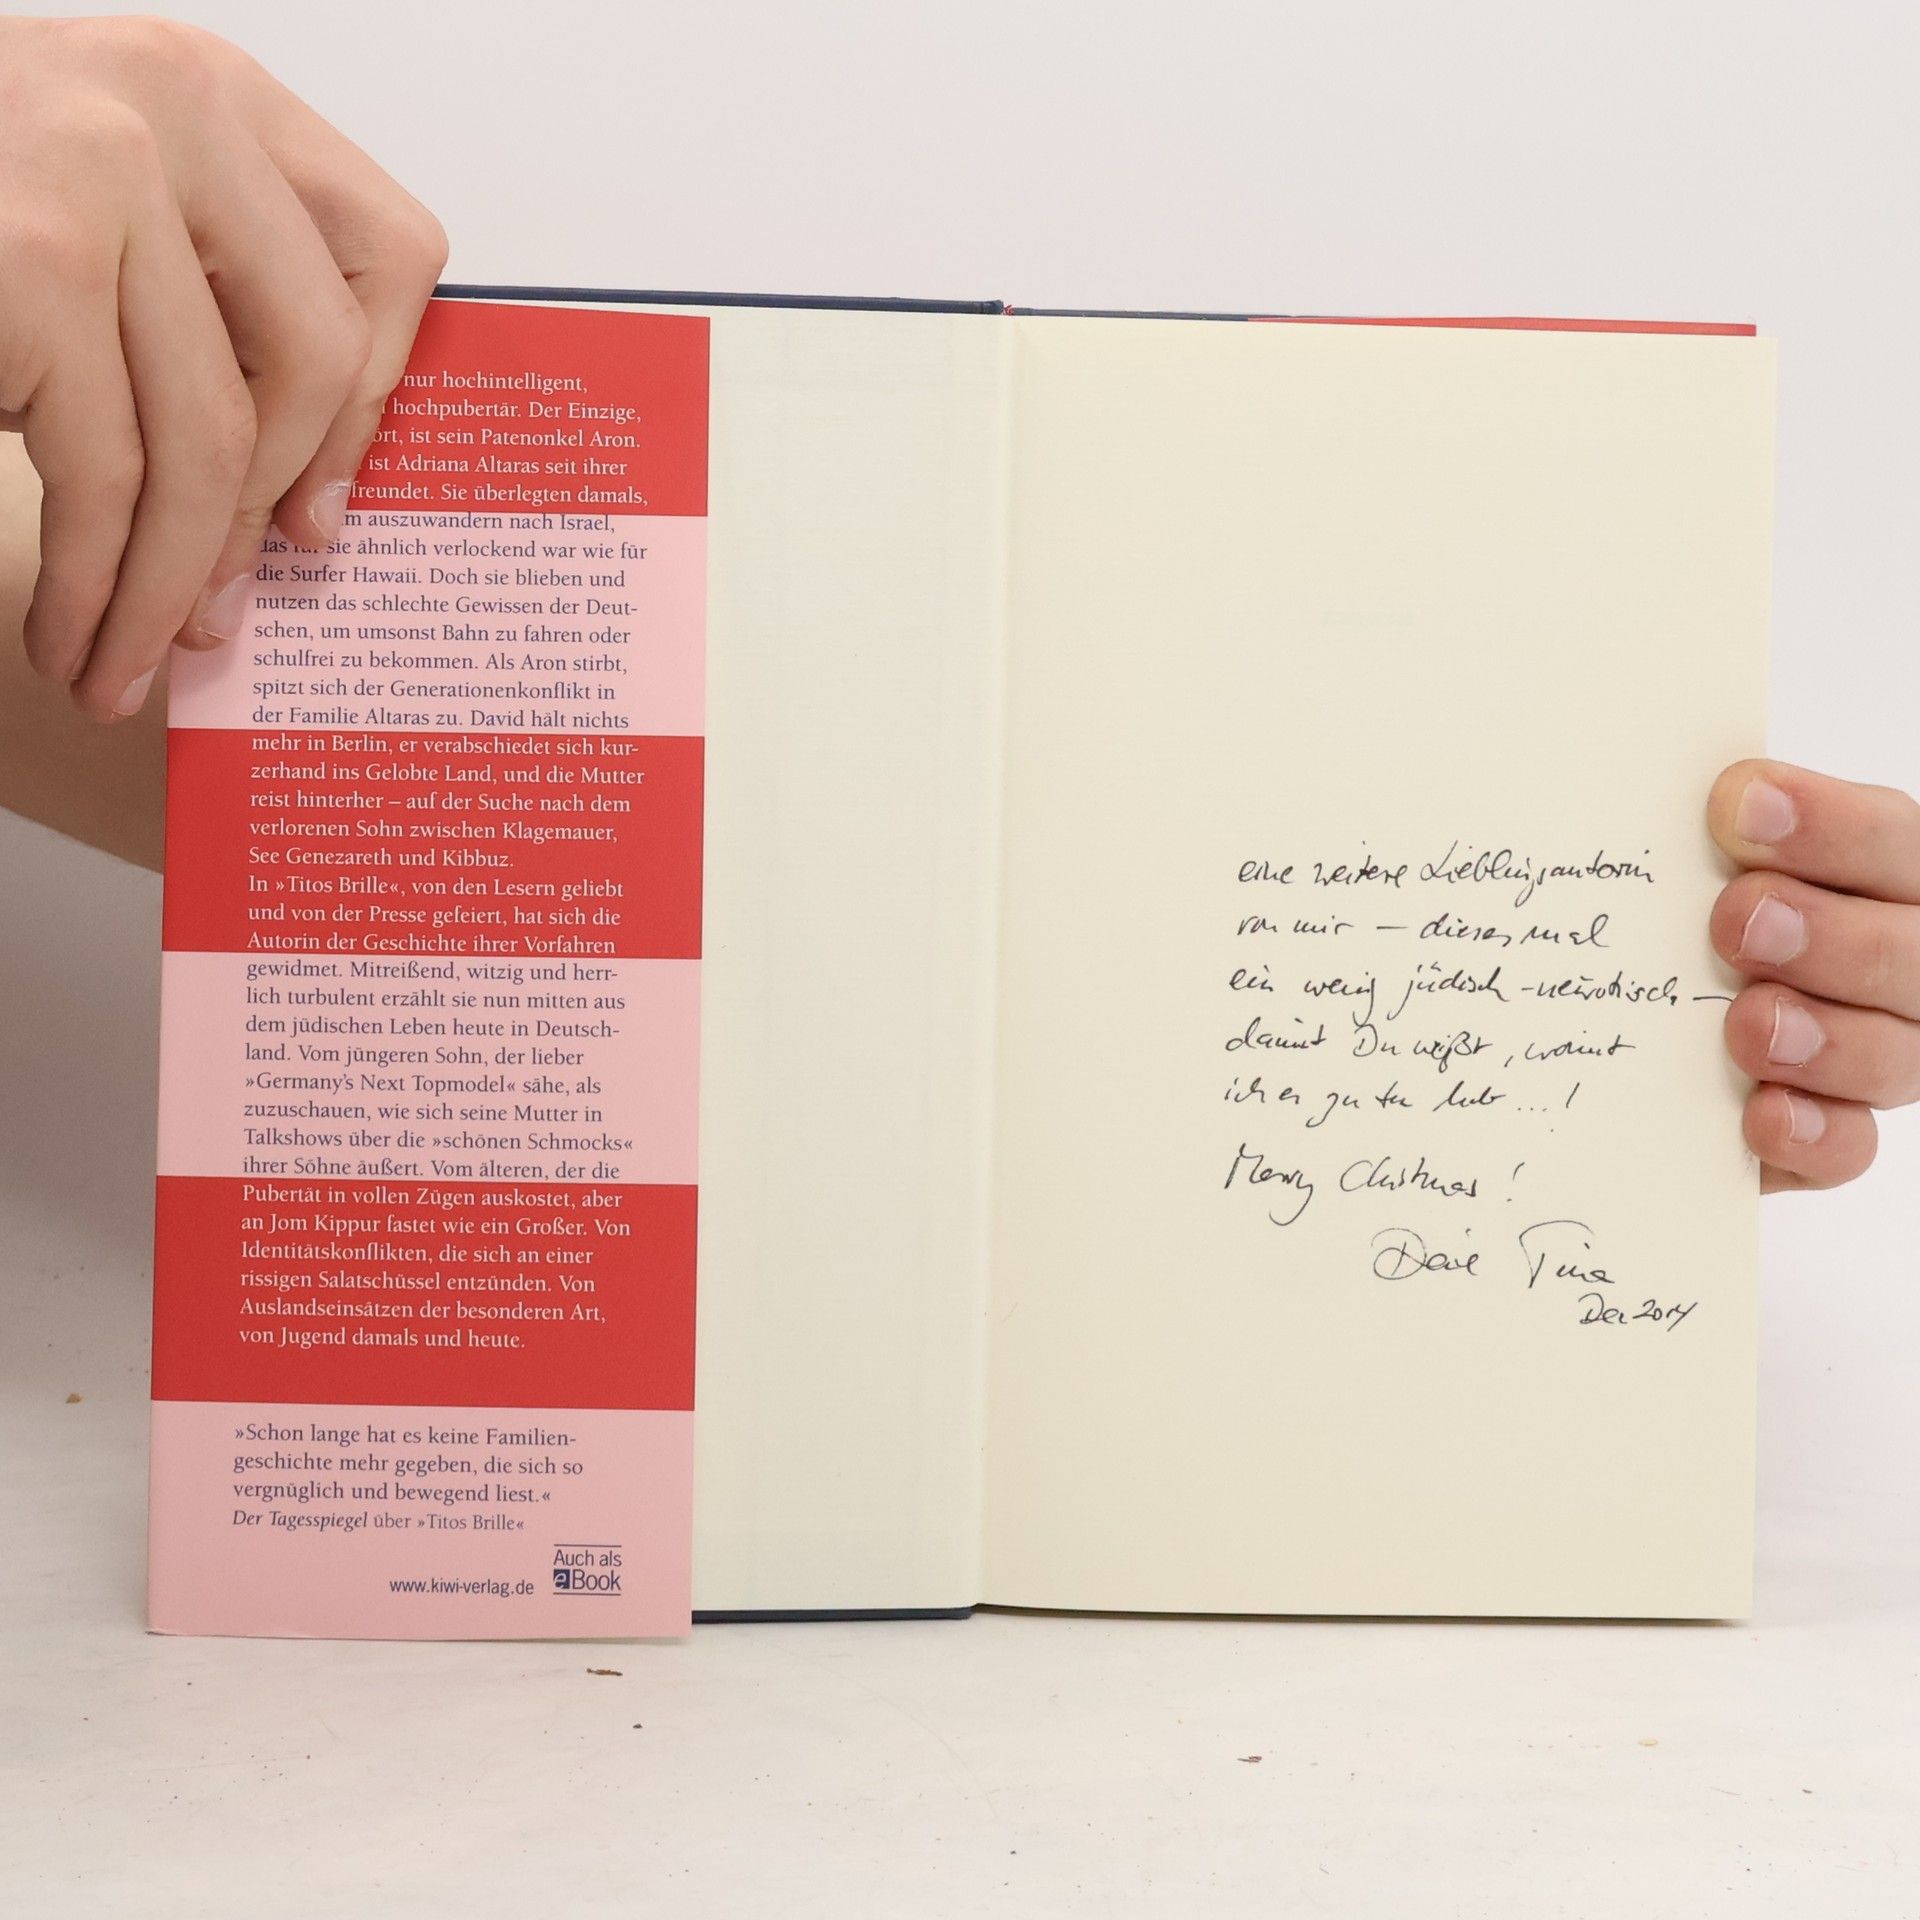 nur hochintelligent,
hochpubertär. Der Einzige,
ört, ist sein Patenonkel Aron.
ist Adriana Altaras seit ihrer
freundet. Sie überlegten damals,
m auszuwandern nach Israel,
das sie ähnlich verlockend war wie für
die Surfer Hawaii. Doch sie blieben und
nutzen das schlechte Gewissen der Deut-
schen, um umsonst Bahn zu fahren oder
schulfrei zu bekommen. Als Aron stirbt,
spitzt sich der Generationenkonflikt in
der Familie Altaras zu. David hält nichts
mehr in Berlin, er verabschiedet sich kur-
zerhand ins Gelobte Land, und die Mutter
reist hinterher – auf der Suche nach dem
verlorenen Sohn zwischen Klagemauer,
See Genezareth und Kibbuz.
In »Titos Brille«, von den Lesern geliebt
und von der Presse gefeiert, hat sich die
Autorin der Geschichte ihrer Vorfahren
gewidmet. Mitreißend, witzig und herr-
lich turbulent erzählt sie nun mitten aus
dem jüdischen Leben heute in Deutsch-
land. Vom jüngeren Sohn, der lieber
»Germany's Next Topmodel« sähe, als
zuzuschauen, wie sich seine Mutter in
Talkshows über die »schönen Schmocks«
ihrer Söhne äußert. Vom älteren, der die
Pubertät in vollen Zügen auskostet, aber
an Jom Kippur fastet wie ein Großer. Von
Identitätskonflikten, die sich an einer
rissigen Salatschüssel entzünden. Von
Auslandseinsätzen der besonderen Art,
von Jugend damals und heute.
»Schon lange hat es keine Familien-
geschichte mehr gegeben, die sich so
vergnüglich und bewegend liest.«
Der Tagesspiegel über »Titos Brille«
Auch als
www.kiwi-verlag.de eBook
eine weitere Lieblingsautorin
von mir – dieses mal
ein wenig jüdisch-neurotisch –
damit Du weißt, womit
ich es zu tun hab ...!
Merry Christmas!
Deine Tina
Dez 2014